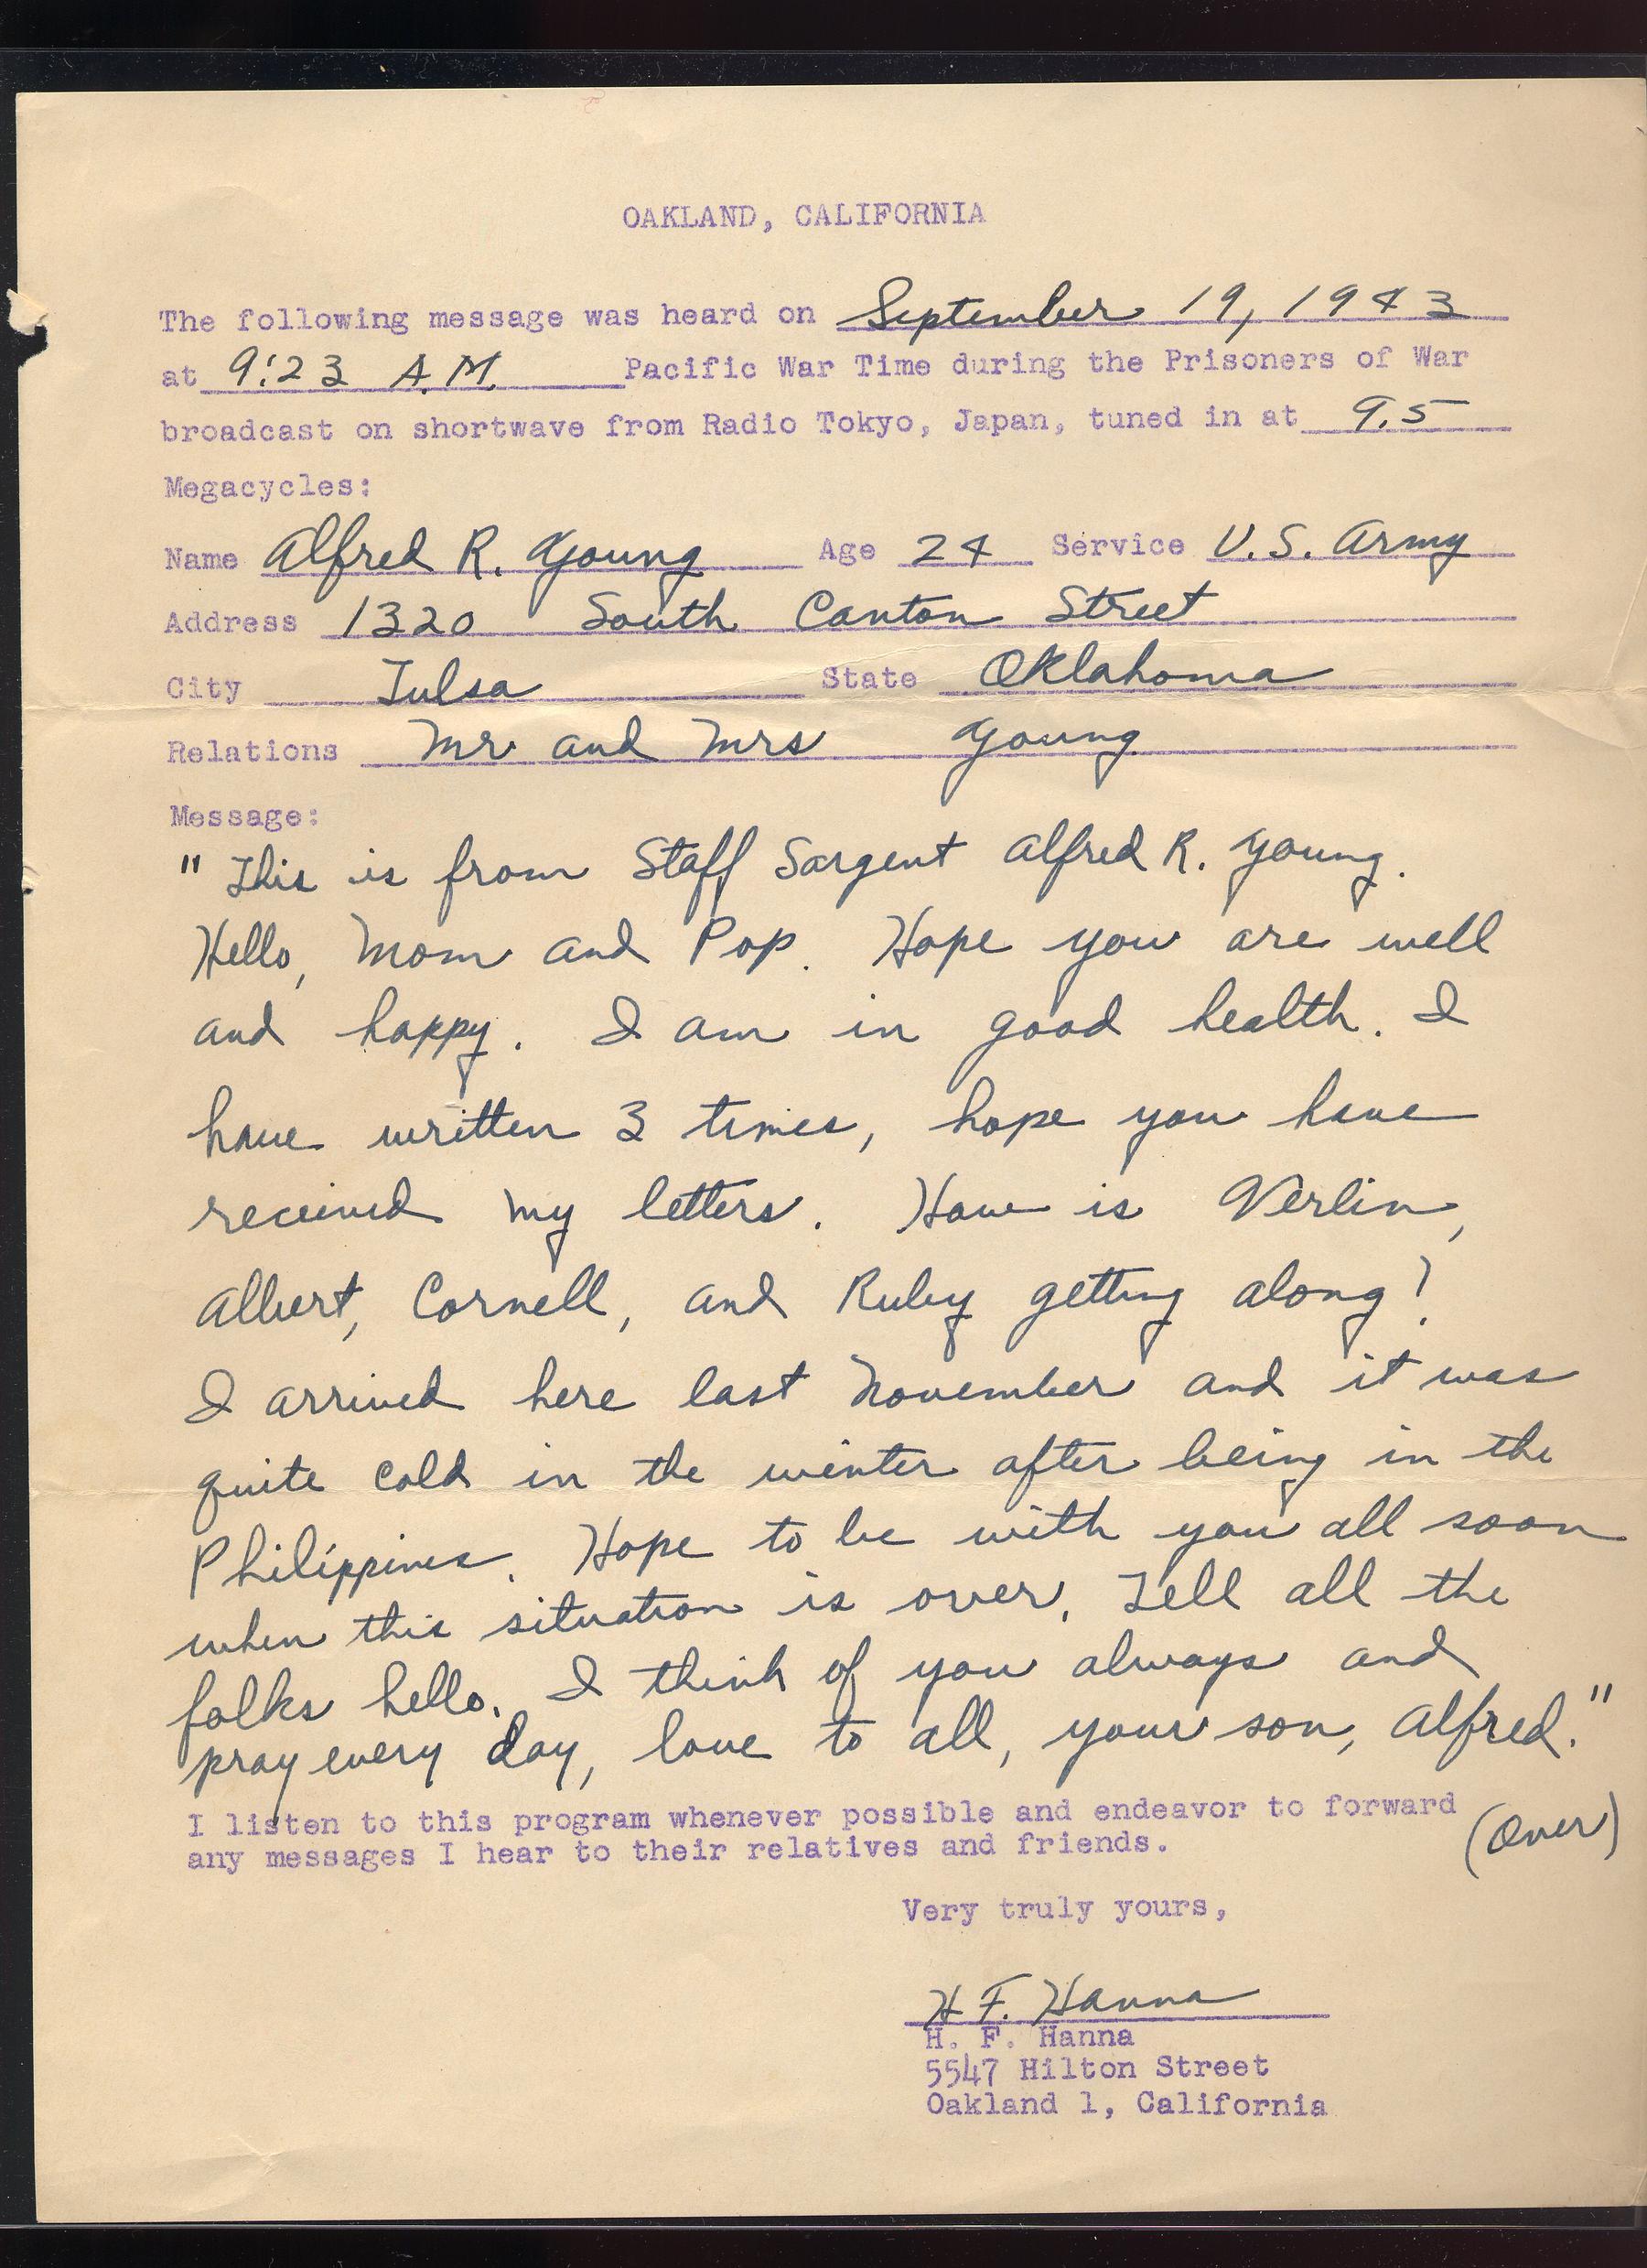 OAKLAND, CALIFORNIA
The following message was heard on September 19, 1943
at 9:23 A.M. Pacific War Time during the Prisoners of War
broadcast on shortwave from Radio Tokyo, Japan, tuned in at 9.5
Megacycles:
Name Alfred R. Young Age 24 Service U.S. Army
Address 1320 South Canton Street
City Tulsa State Oklahoma
Relations Mr and Mrs Young
Message:
"This is from Staff Sargent Alfred R. Young.
Hello, Mom and Pop. Hope you are well
and happy. I am in good health. I
have written 3 times, hope you have
received my letters. How is Verlin,
Albert, Cornell, and Ruby getting along?
I arrived here last November and it was
quite cold in the winter after being in the
Philippines. Hope to be with you all soon
when this situation is over. Tell all the
folks hello. I think of you always and
pray every day, love to all, your son, Alfred."
I listen to this program whenever possible and endeavor to forward
any messages I hear to their relatives and friends.
(over)
Very truly yours,
H F. Hanna
H. F. Hanna
5547 Hilton Street
Oakland 1, California